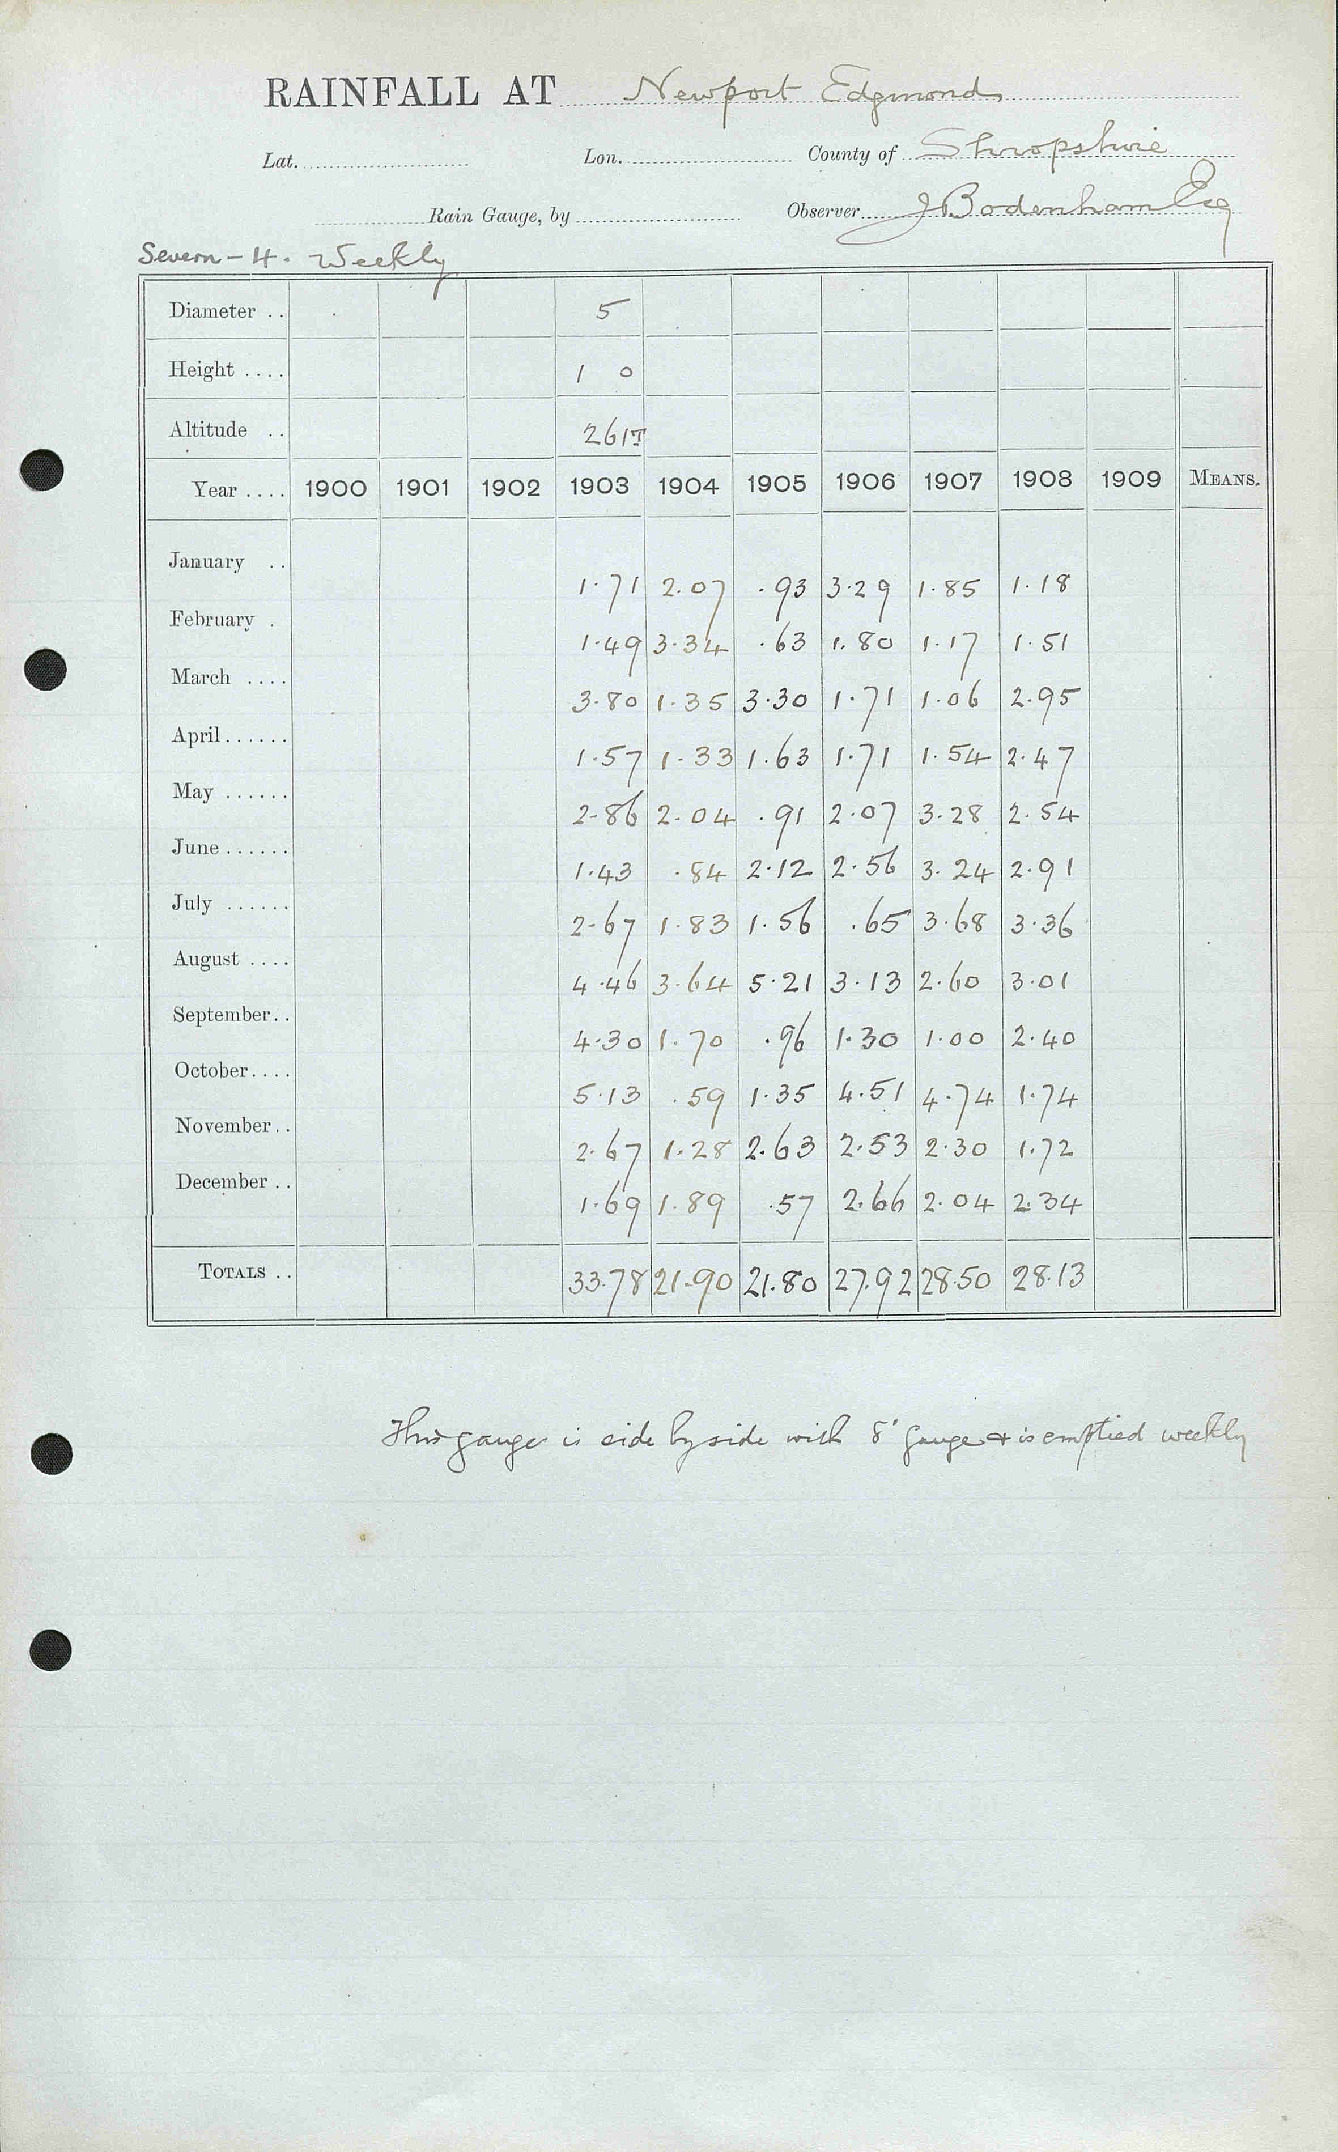 RAINFALL AT Newport Edgmond
Lat. Lon. County of Shropshire
Rain Gauge, by Observer J Bodenham Esq
Severn - 4. Weekly
Diameter .. 5
Height .... 1 0
Altitude .. 261T
Year .... 1900 1901 1902 1903 1904 1905 1906 1907 1908 1909 MEANS.
January .. 1.71 2.07 .93 3.29 1.85 1.18
February . 1.49 3.34 .63 1.80 1.17 1.51
March .... 3.80 1.35 3.30 1.71 1.06 2.95
April...... 1.57 1.33 1.63 1.71 1.54 2.47
May ...... 2.86 2.04 .91 2.07 3.28 2.54
June...... 1.43 .84 2.12 2.56 3.24 2.91
July ...... 2.67 1.83 1.56 .65 3.68 3.36
August .... 4.46 3.64 5.21 3.13 2.60 3.01
September.. 4.30 1.70 .96 1.30 1.00 2.40
October.... 5.13 .59 1.35 4.51 4.74 1.74
November.. 2.67 1.28 2.63 2.53 2.30 1.72
December .. 1.69 1.89 .57 2.66 2.04 2.34
TOTALS .. 33.78 21.90 21.80 27.92 28.50 28.13
This gauge is side by side with 8" gauge & is emptied weekly